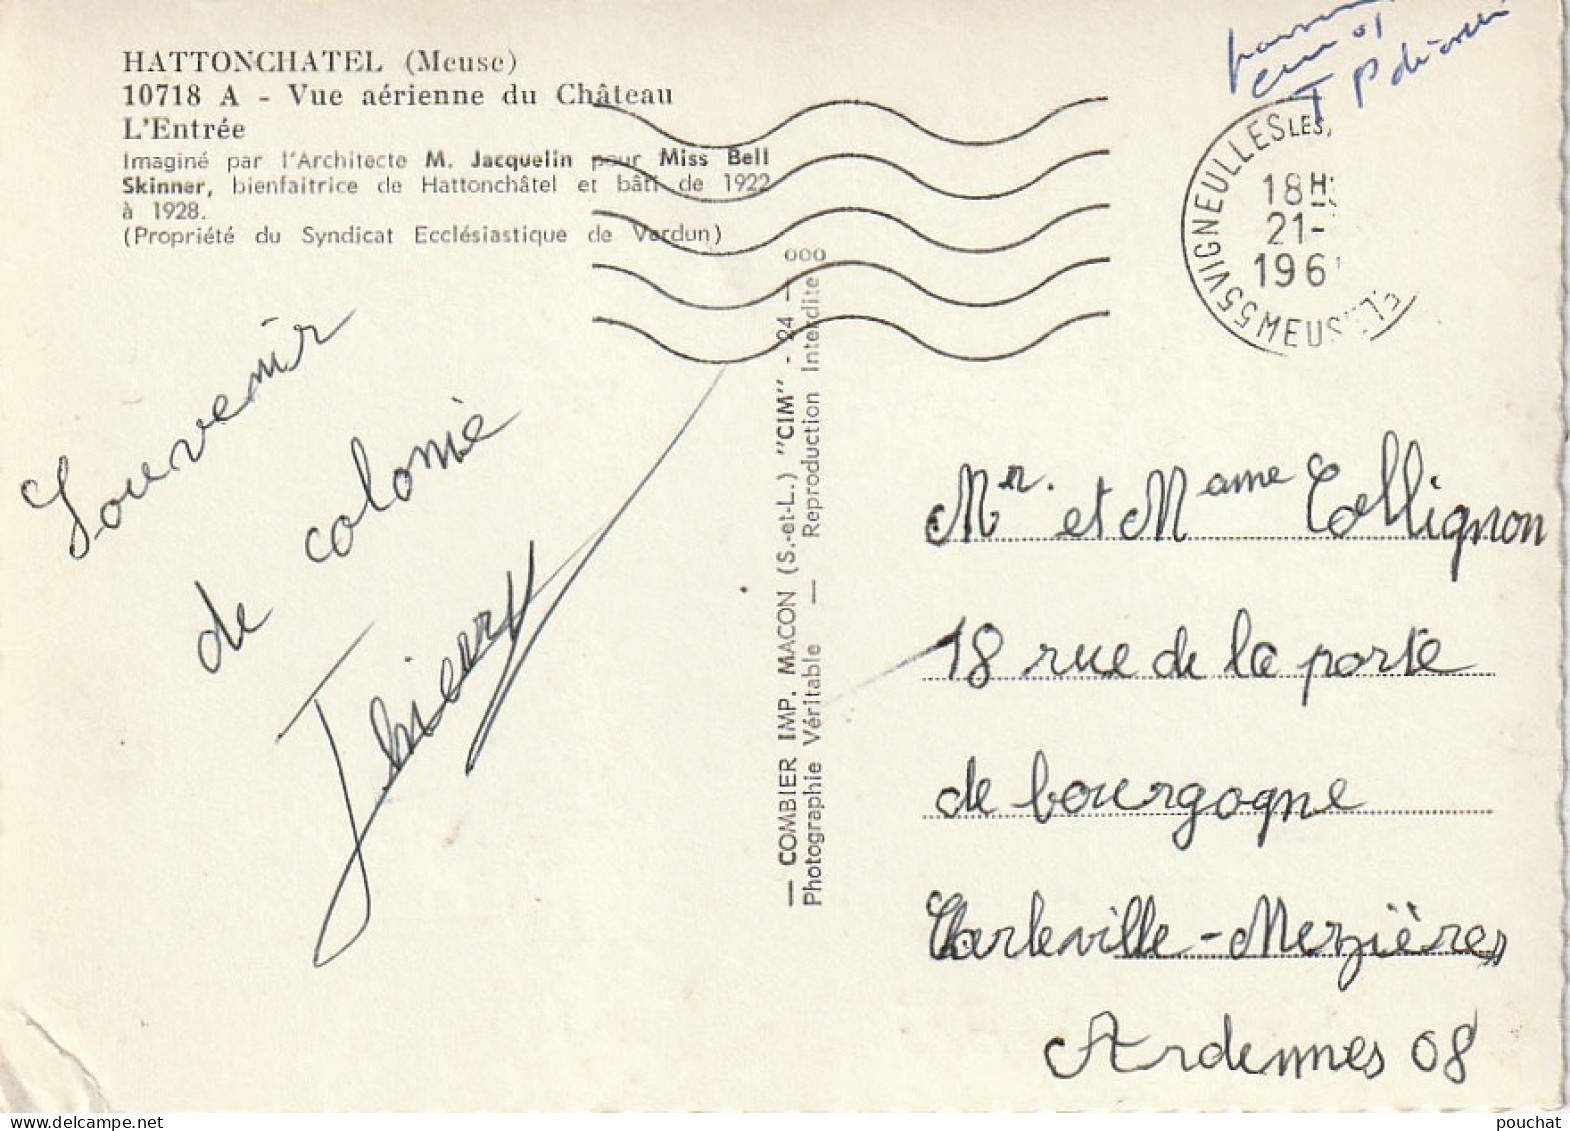 HATTONCHATEL (Meuse)
10718 A - Vue aérienne du Château
L'Entrée
Imaginé par l'Architecte M. Jacquelin pour Miss Bell
Skinner, bienfaitrice de Hattonchâtel et bâti de 1922
à 1928.
(Propriété du Syndicat Ecclésiastique de Verdun)
VIGNEULLES LES
18H
21-
196
55 MEUSE 55
Souvenir
de colonie
Thierry
— COMBIER IMP. MACON (S.-et-L.) "CIM" - 24 — 000
Photographie Véritable — Reproduction Interdite
Mr. et Mame Collignon
18 rue de la porte
de bourgogne
Charleville-Mezières
Ardennes 08
pouchat